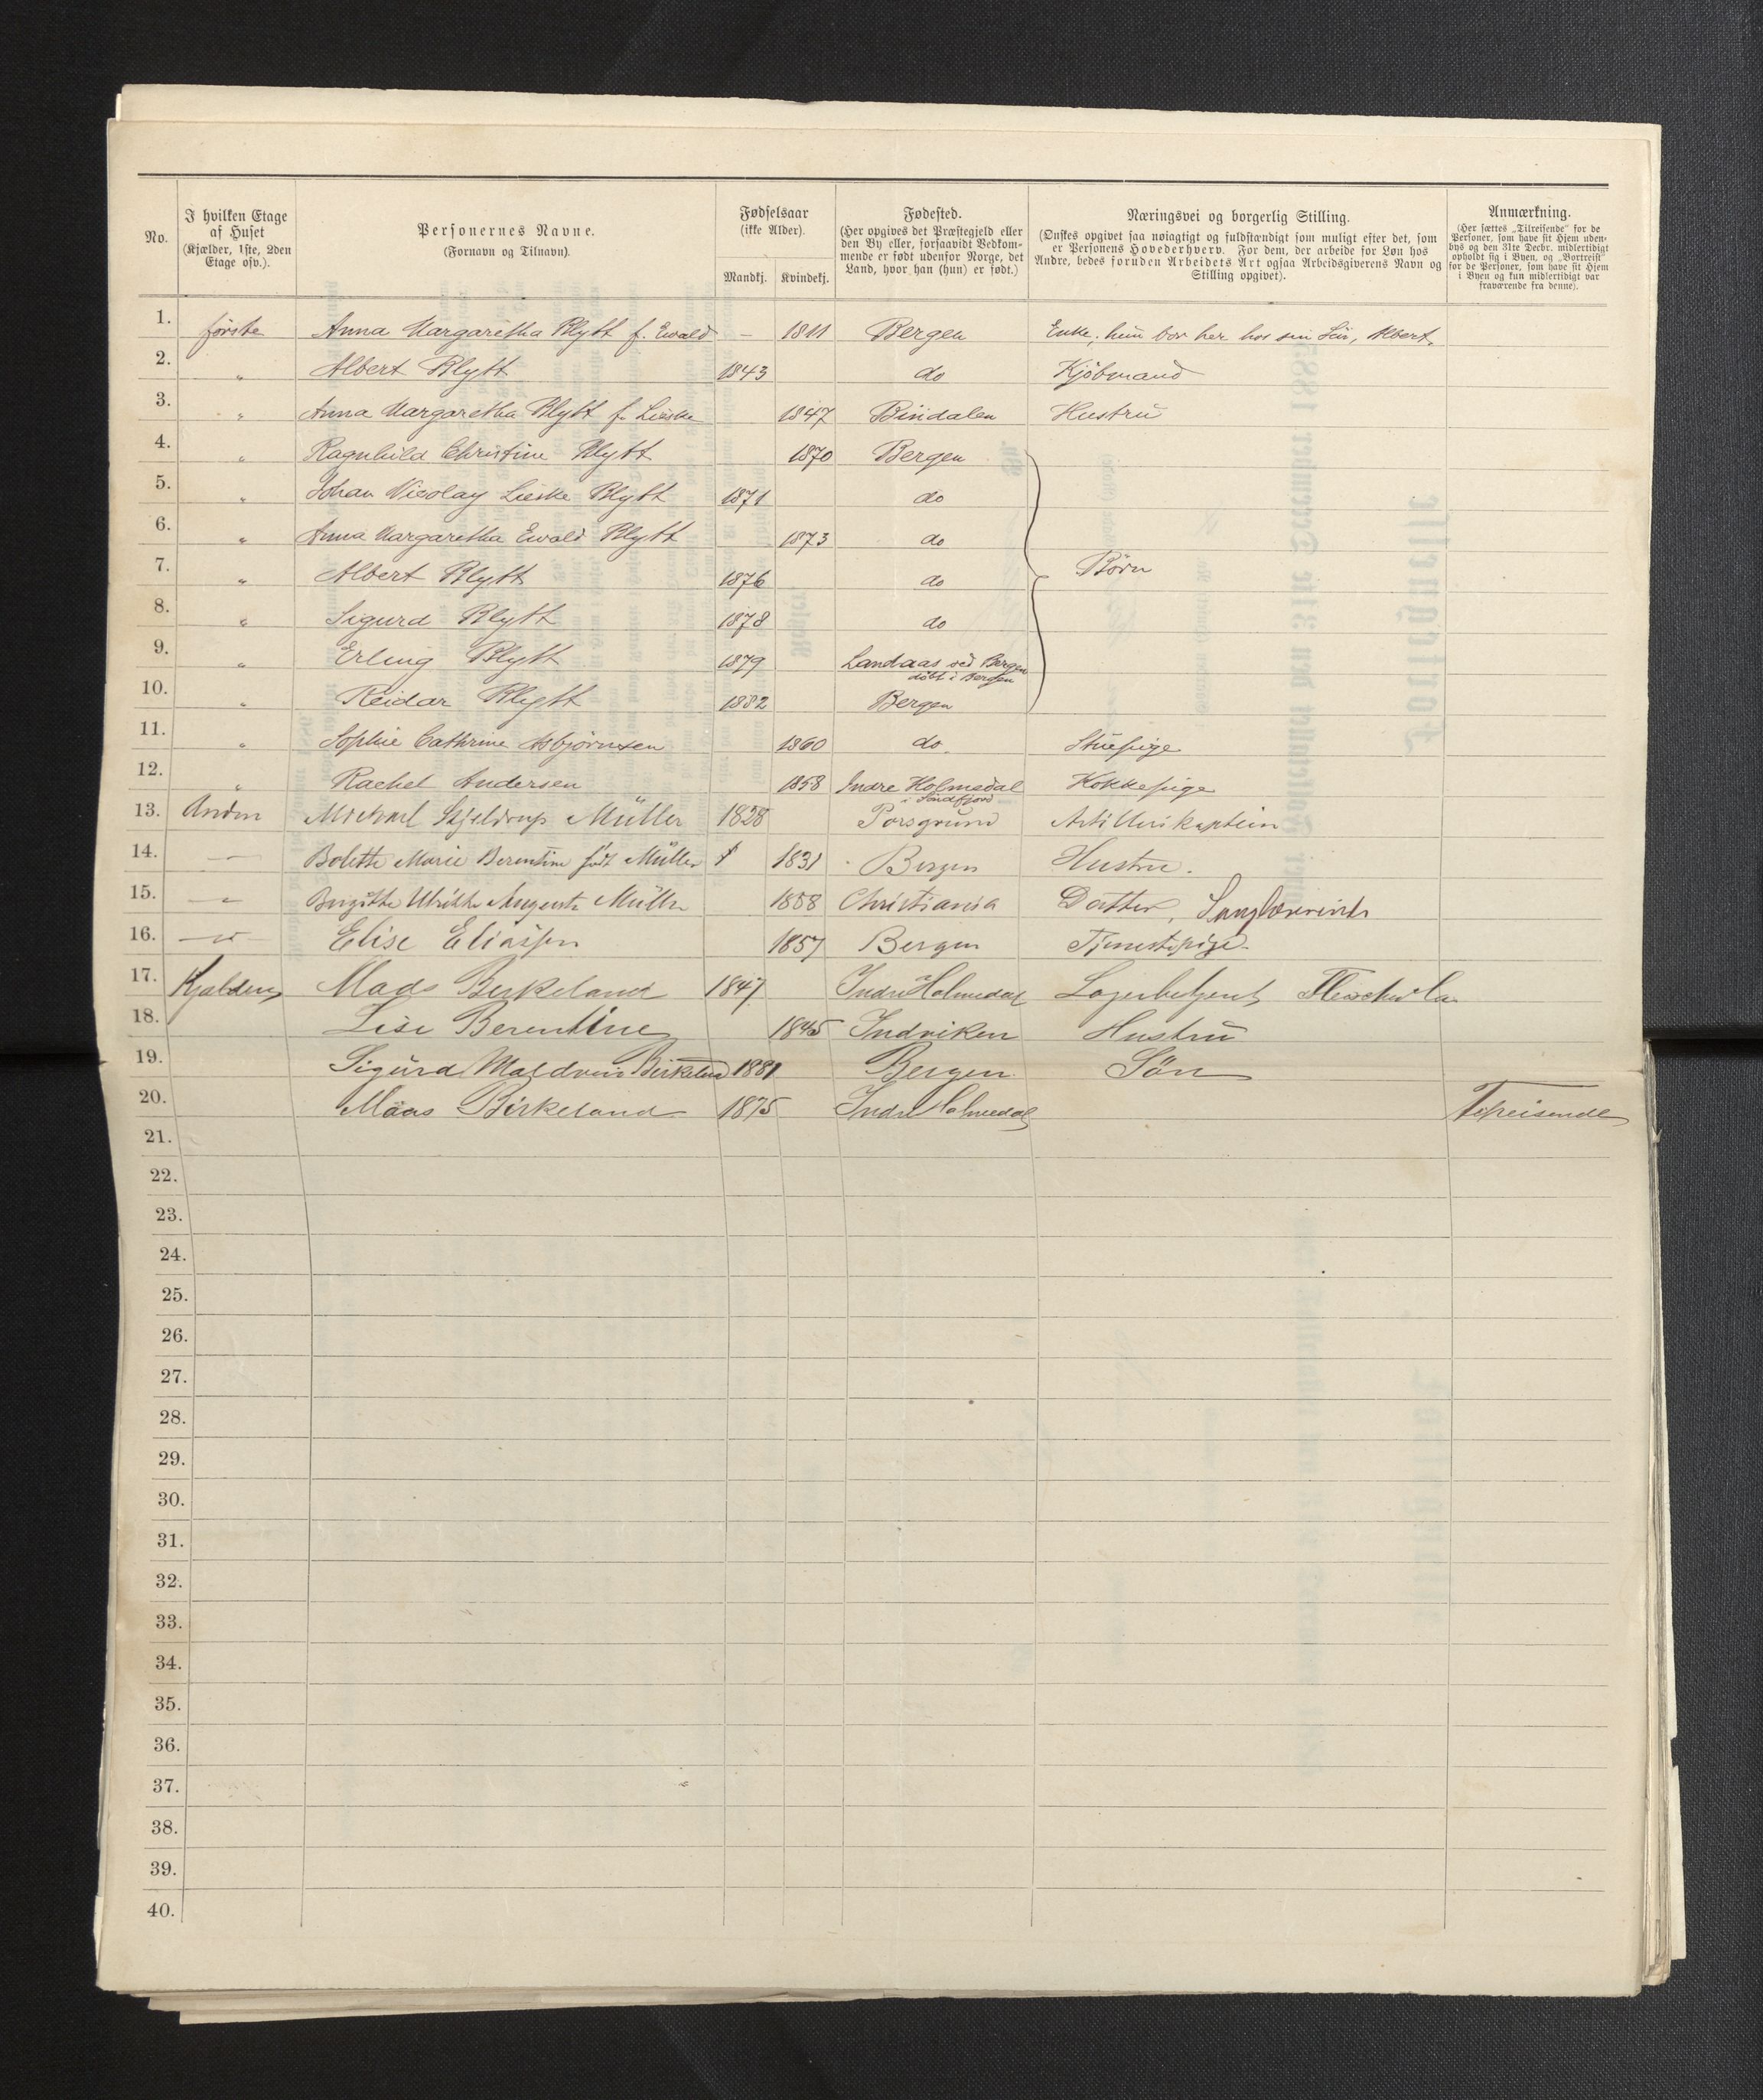 No.
I hvilken Etage af Huset (Kjælder, 1ste, 2den Etage osv.).
Personernes Navne. (Fornavn og Tilnavn).
Fødselsaar (ikke Alder).
Mandkj. Kvindekj.
Fødested. (Her opgives det Præstegjeld eller den By eller, forsaavidt Vedkommende er født udenfor Norge, det Land, hvor han (hun) er født.)
Næringsvei og borgerlig Stilling. (Ønskes opgivet saa nøiagtigt og fuldstændigt som muligt efter det, som er Personens Hovederhverv. For dem, der arbeide for Løn hos Andre, bedes foruden Arbeidets Art ogsaa Arbeidsgiverens Navn og Stilling opgivet).
Anmærkning. (Her sættes „Tilreisende" for de Personer, som have sit Hjem udenbys og den 31te Decbr. midlertidigt opholdt sig i Byen, og „Bortreist" for de Personer, som have sit Hjem i Byen og kun midlertidigt var fraværende fra denne).
1. første Anna Margaretha Blytt f. Ewald – 1811 Bergen Enke; hun bor her hos sin Søn, Albert.
2. " Albert Blytt 1843 do Kjøbmand
3. " Anna Margaretha Blytt f. Lieske 1847 Bindalen Hustru
4. " Ragnhild Christine Blytt 1870 Bergen
5. " Johan Nicolay Lieske Blytt 1871 do
6. " Anna Margaretha Ewald Blytt 1873 do
7. " Albert Blytt 1876 do Børn
8. " Sigurd Blytt 1878 do
9. " Erling Blytt 1879 Landaas ved Bergen døbt i Bergen
10. " Reidar Blytt 1882 Bergen
11. " Sophie Cathrine Asbjørnsen 1860 do. Stuepige
12. " Rachel Andersen 1858 Indre Holmedal i Søndfjord Kokkepige
13. Anden Michael Skjeldrup Müller 1828 Porsgrund Artillerikaptein
14. — Bolette Marie Berentine født Müller 1831 Bergen Hustru.
15. — Birgitte Ulrikke Augusta Müller 1858 Christiania Datter, Sanglærerinde
16. — Elise Eliassen 1857 Bergen Tjenestepige
17. Kjælderen Mads Birkeland 1847 Indre Holmedal Lagerbetjent
18. Lise Berentine 1845 Indviken Hustru
19. Sigurd Maldvin Birkeland 1881 Bergen Søn
20. Birkeland 1875 Indre Holmedal Tilreisende
21.
22.
23.
24.
25.
26.
27.
28.
29.
30.
31.
32.
33.
34.
35.
36.
37.
38.
39.
40.